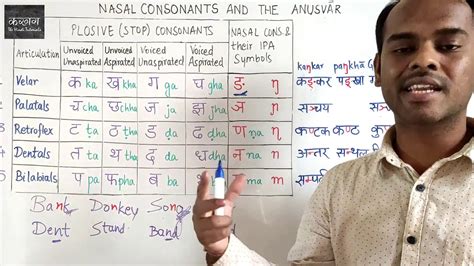 कलांग
The Hindi Tutorials
NASAL CONSONANTS AND THE ANUSVĀR
PLOSIVE (STOP) CONSONANTS NASAL CONS & their IPA Symbols
Articulation Unvoiced Unaspirated Unvoiced Aspirated Voiced Unaspirated Voiced Aspirated
kaṅkar paṅkhā G
Velar क ka ख kha ग ga घ gha ङ ŋ कङ्कर पङ्खा
Palatals च cha छ chha ज ja झ jha सञ्चय
Retroflex ट ṭa ठ ṭha ड ḍa ढ ḍha ण ṇa कण्टक कण्ठ
Dentals त ta थ tha द da ध dha न na n अन्तर
Bilabials प pa फ pha ब ba ma m
Bank Donkey Song
Dent Stand Band